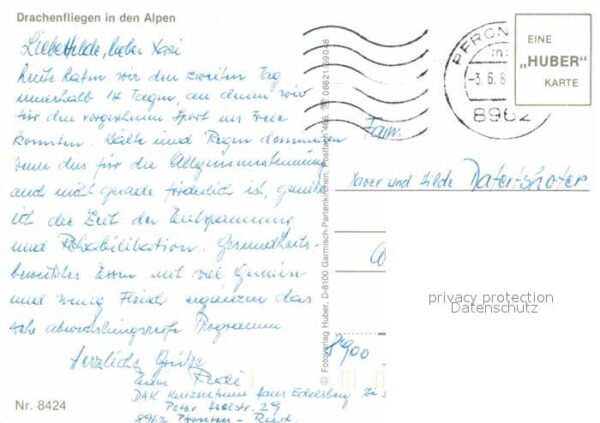 Drachenfliegen in den Alpen
Liebe Hilde, lieber Xari
heute hatten wir den zweiten Tag
innerhalb 14 Tagen, an denen wir
für den vorgesehenen Sport ins Freie
konnten. Kälte und Regen dominieren
wenn das für die Allgemeinstimmung
auch nicht gerade förderlich ist, genieße
ich die Zeit der Entspannung
und Rehabilitation. Gesundheits-
bewußtes Essen mit viel Gemüse
und wenig Fleisch ergänzen das
sehr abwechslungsreiche Programm
Herzliche Grüße
Rudi
DAK Kurzentrum Haus Edelsberg
Peter Heel str. 29
8962 Pfronten - Ried
Nr. 8424
© Fotoverlag Huber, D-8100 Garmisch-Partenkirchen, Postfach 466, 08821/69048
PFRON
-3.6.8
8962
EINE
„HUBER"
KARTE
Fam.
Xaver und Hilde Datertshofer
8900
privacy protection
Datenschutz